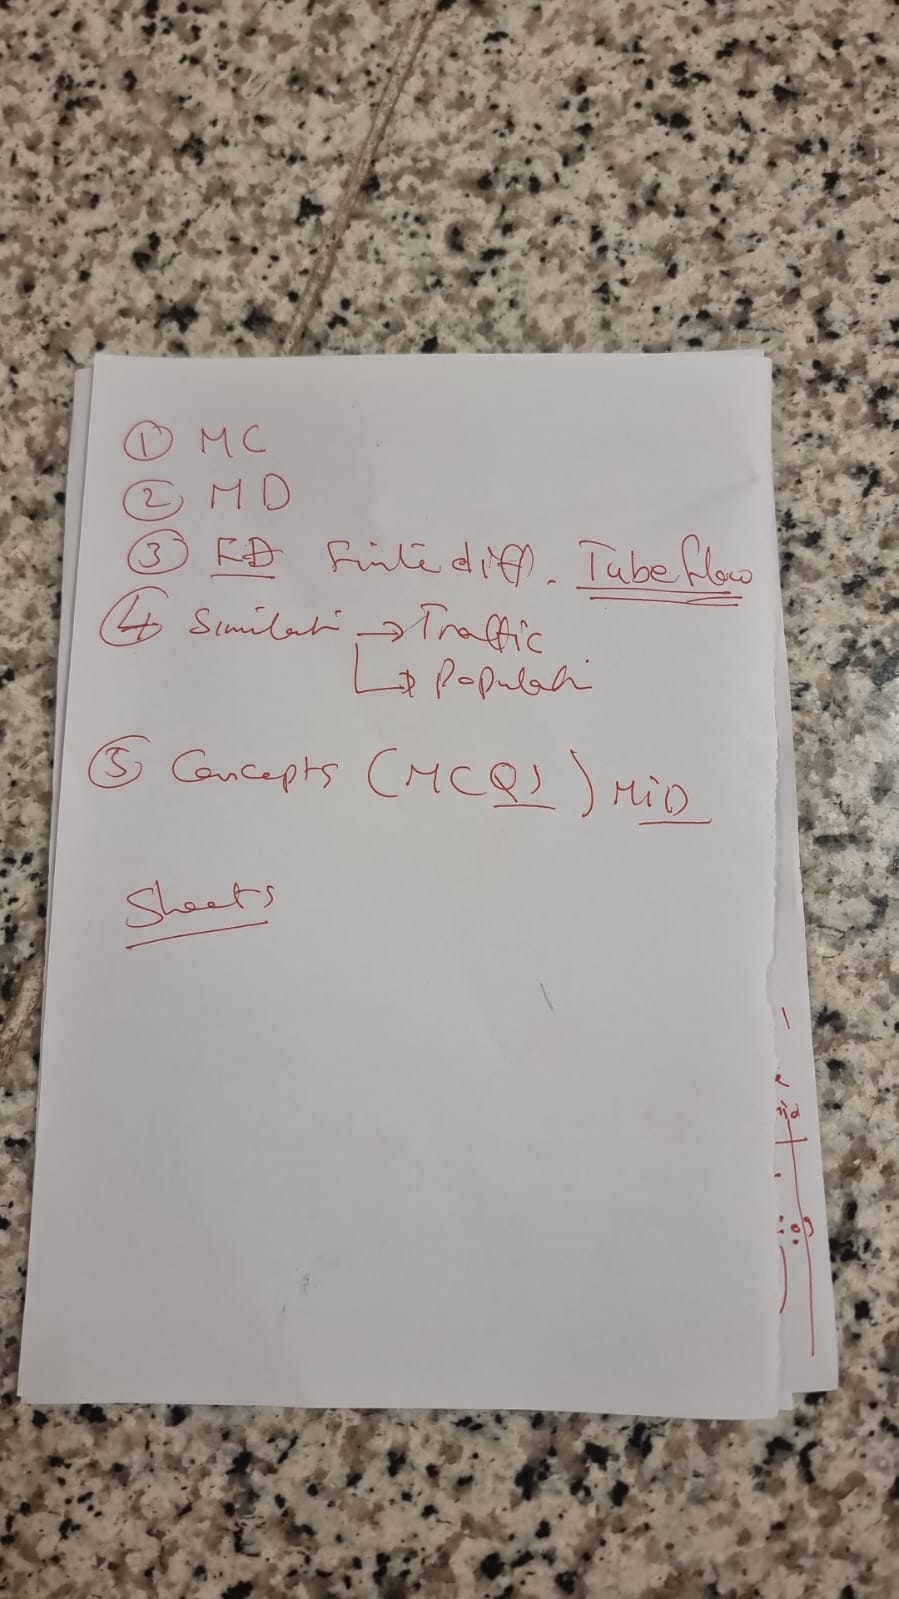 ① MC
② MD
③ FD Finite diff. Tube flow
④ Simulati → Traffic
→ Populati
⑤ Concepts (MCQS) MiD
Sheets